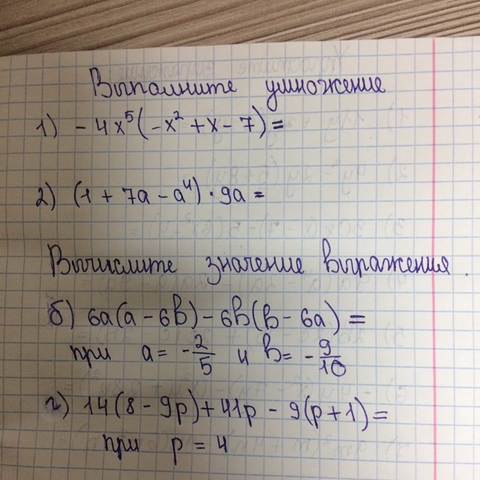 Выполните умножение
1) - 4x⁵(-x² + x - 7) =
2) (1 + 7a - a⁴) · 9a =
Вычислите значение выражения.
б) 6a(a - 6b) - 6b(b - 6a) =
при a = -2/5 и b = -9/10
г) 14(8 - 9p) + 41p - 9(p + 1) =
при p = 4